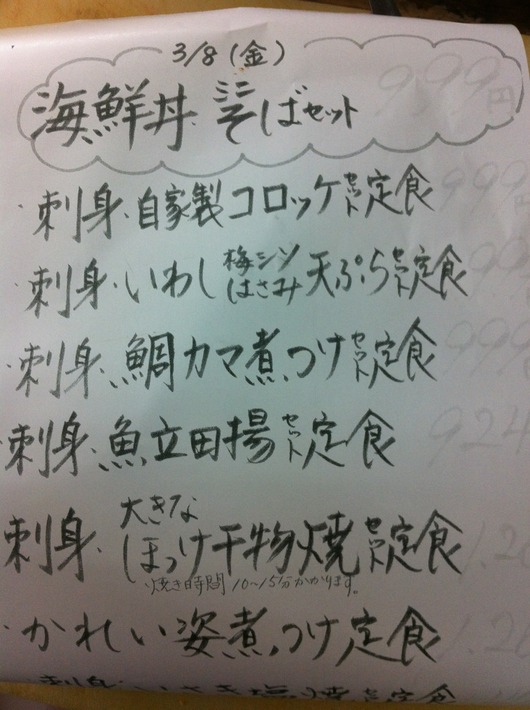 3/8(金)
海鮮丼 ミニそばセット 999円
・刺身・自家製コロッケセット定食 999円
・刺身・いわし梅シソはさみ天ぷらセット定食
・刺身・鯛カマ煮つけセット定食 999
刺身・魚立田揚セット定食 924
刺身・大きなほっけ干物焼セット定食
焼き時間10〜15分かかります。
・かれい姿煮つけ定食